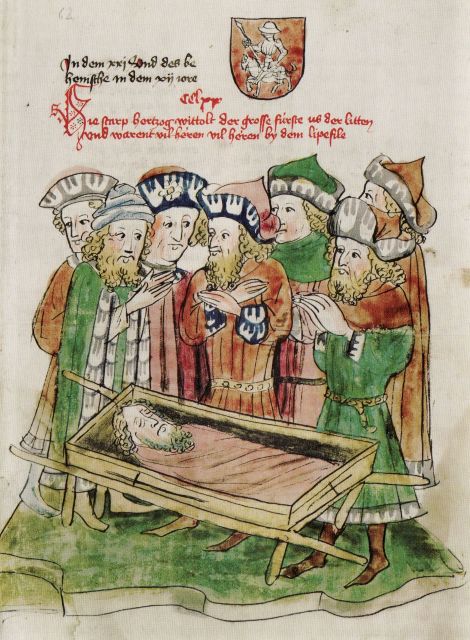 62
In dem xxj Und des be
hemsche in dem xij iore
CClxx
Hie starp hertzog wittolt der grosse fürste us der litten
Und warent vil heren vil heren by dem lipefile